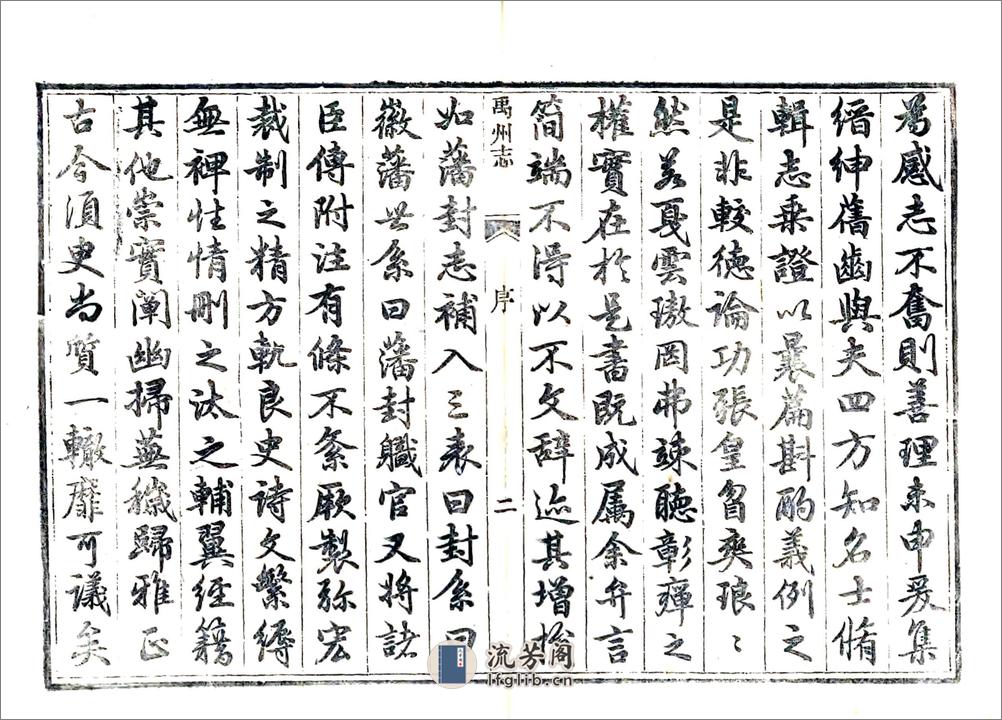 為感志不奮則善理未申爰集
縉紳舊齒與夫四方知名士脩
輯志乘證以曩篇斟酌義例之
是非較德論功張皇奕琅〻
然若戛雲璈罔弗竦聽彰癉之
權實在於是書既成属余弁言
简端不淂以不文辞迹其增
禹州志 序 二
如藩封志補入三表曰封系曰
徽藩世系曰藩封職官又将諸
臣傳附注有條不紊厥製弥宏
裁制之精方軌良史诗文繁縟
無裨性情刪之汰之輔翼經籍
其他崇實闡幽掃蕪穢歸雅正
古今須史尚質一轍靡可議矣
流芳阁
lfglib.cn